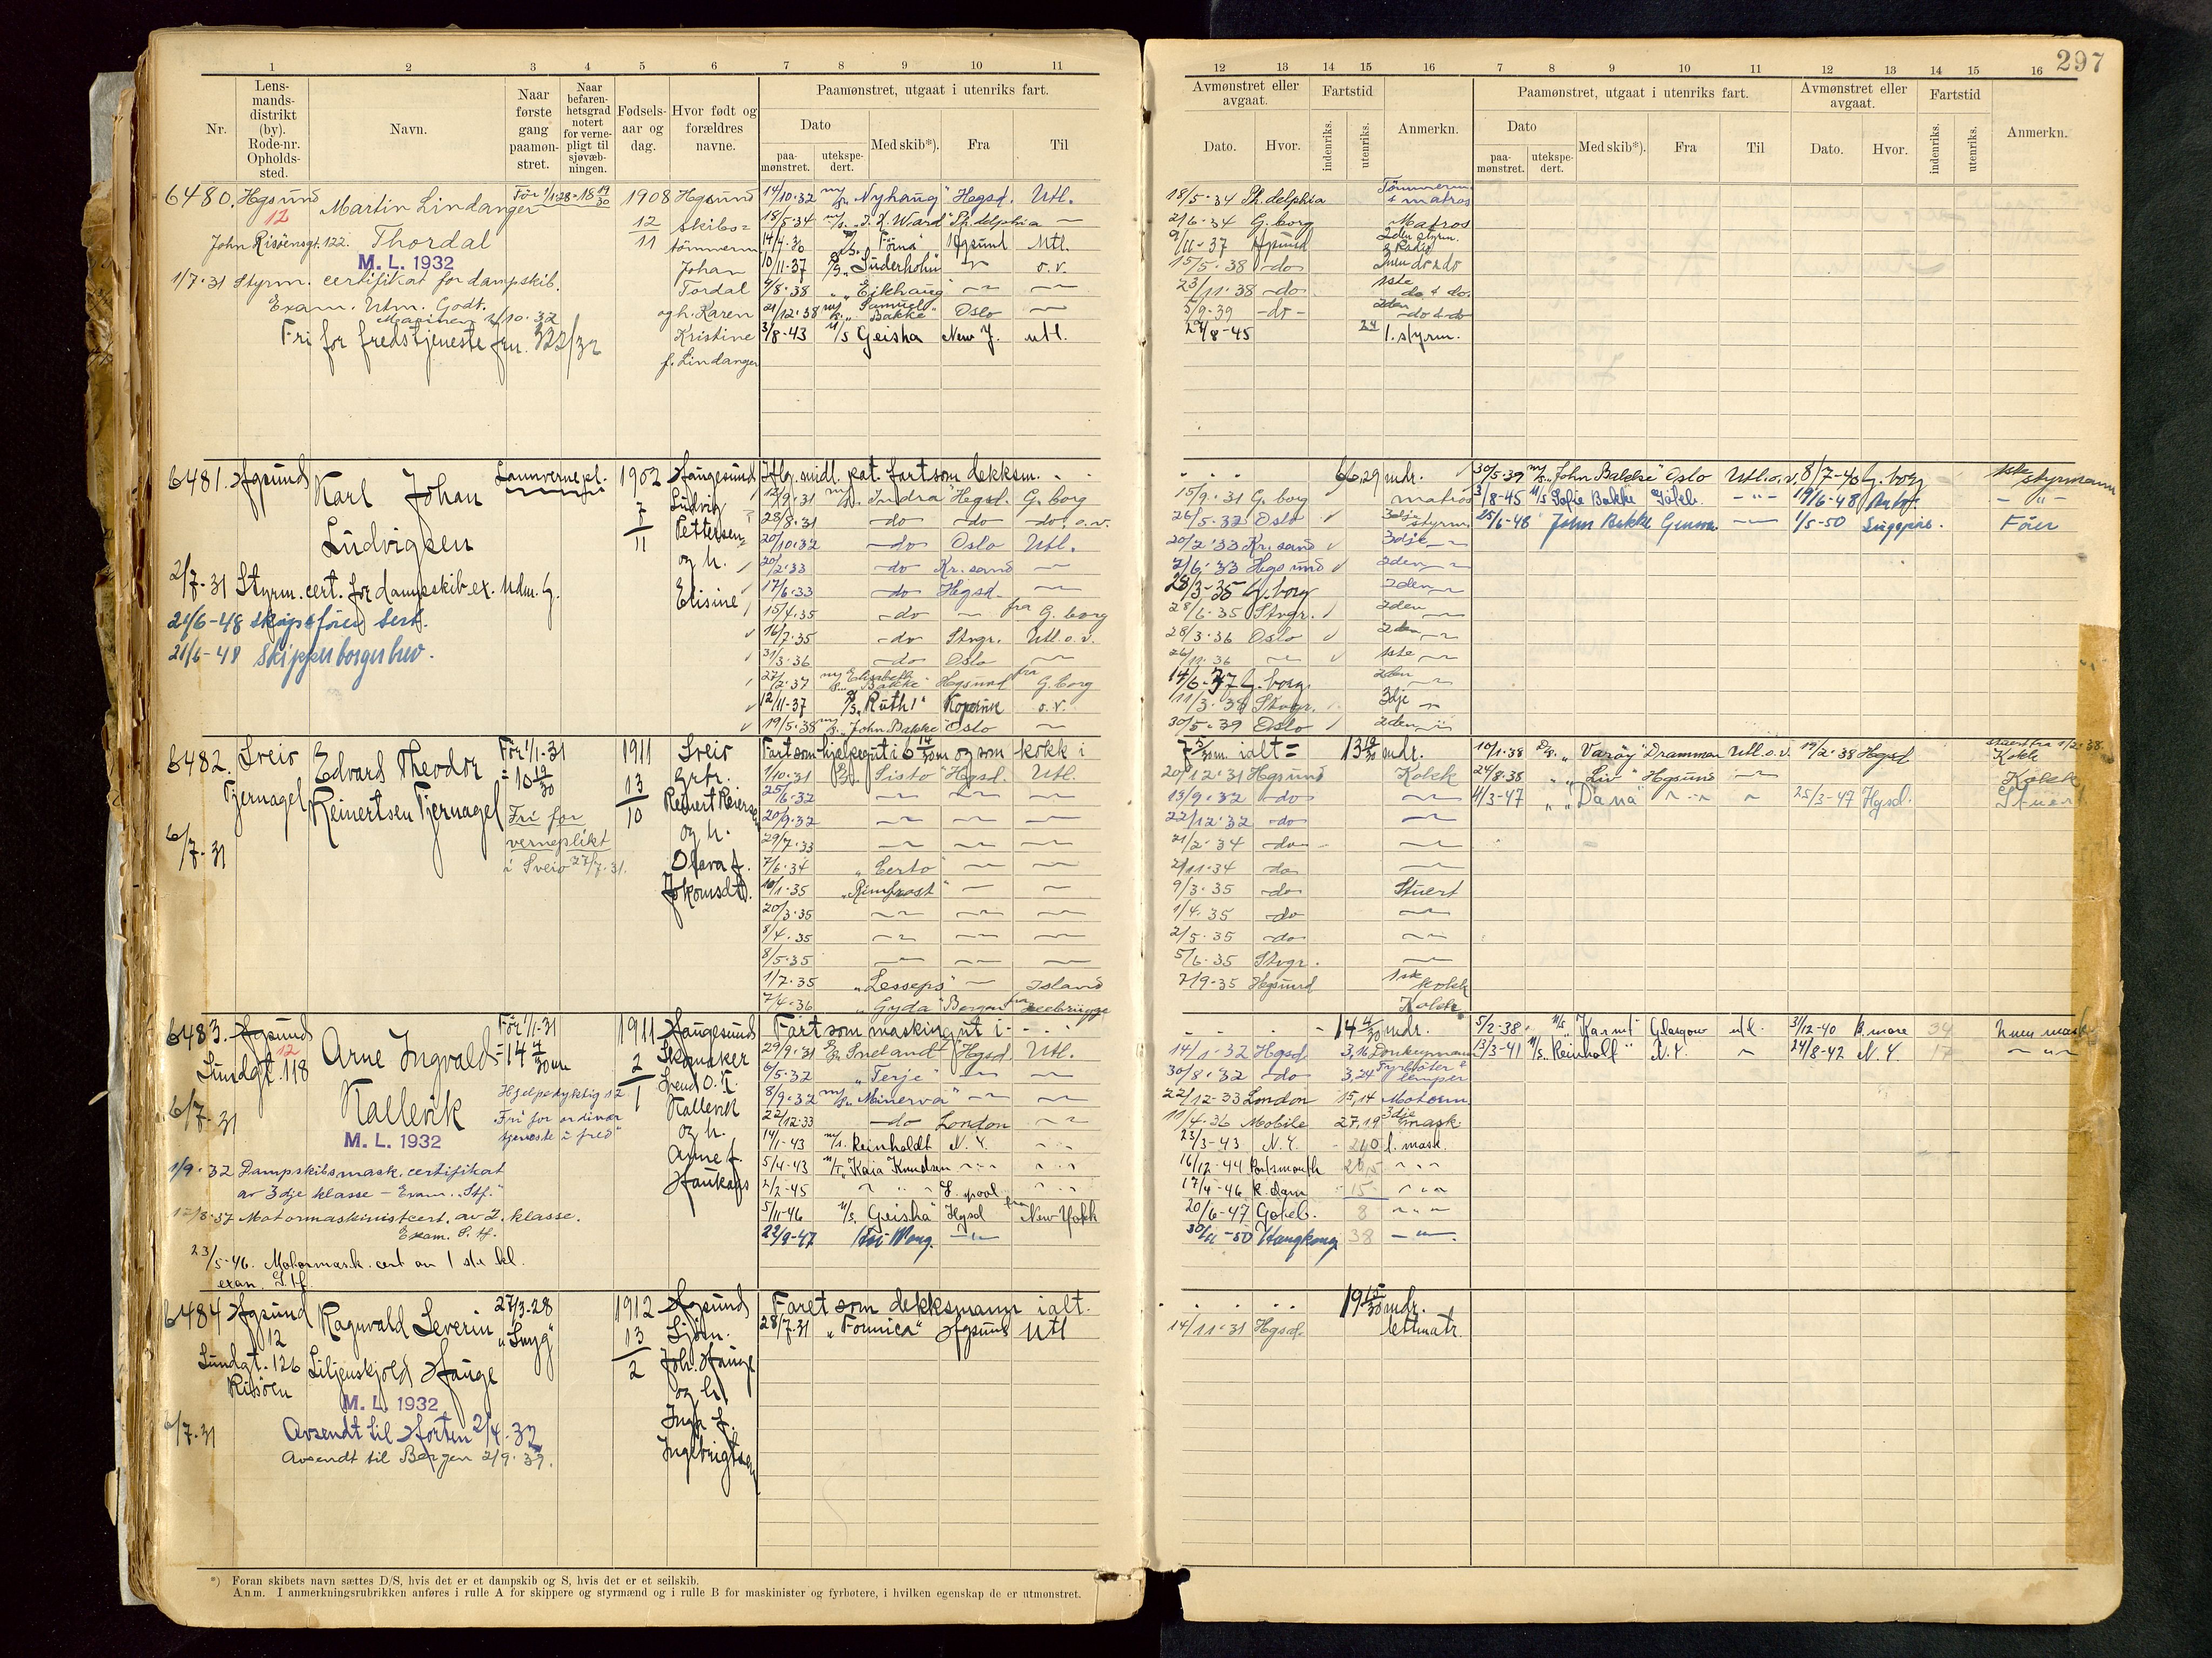 297
1 2 3 4 5 6 7 8 9 10 11
Nr.
Lens-
mands-
distrikt
(by).
Rode-nr.
Opholds-
sted.
Navn.
Naar
første
gang
paamøn-
stret.
Naar
befaren-
hetsgrad
notert
for verne-
pligt til
sjøvæb-
ningen.
Fødsels-
aar og
dag.
Hvor født og
forældres
navne.
Paamønstret, utgaat i utenriks fart.
Dato
paa-
mønstret.
utekspe-
dert.
Med skib*).
Fra
Til
12 13 14 15 16 7 8 9 10 11 12 13 14 15 16
Avmønstret eller
avgaat.
Dato. Hvor.
Fartstid
indenriks.
utenriks.
Anmerkn.
Paamønstret, utgaat i utenriks fart.
Dato
paa-
mønstret.
utekspe-
dert.
Med skib*).
Fra
Til
Avmønstret eller
avgaat.
Dato. Hvor.
Fartstid
indenriks.
utenriks.
Anmerkn.
6480. Hgsund
12
Martin Lindanger
Thordal
John Risöensgt. 122.
M. L. 1932
1/7-31 Styrm. certifikat for dampskib.
Exam. Utm. Godt.
Marinen 1/10-32
Fri for fredstjeneste frn. 322/32
För 1/1-28 = 18 19/30
1908
12/11
Hgsund
skibs=
tömmerm
Johan
Tordal
og h. Karen
Kristine
f. Lindanger
14/10-32 m/s. "Nyhaug" Hegsd. Utl. 18/5-34 Ph.delphia Tömmerm. & matros
18/5-34 m/s. "T. K. Ward" Ph. delphia 2/6-34 G. borg Matros
"Förna" Hgsund Utl. 9/11-37 Hgsund 2den styrm.
10/11-37 "Süderholm" o.v. 15/5-38 -do-
4/8-38 "Eikhaug" 23/11-38 -do- 1ste do & do.
21/12-38 m/s. "Samuel Bakke" Oslo 5/9-39 -do- 2den -do & do
3/8-43 M/S Geisha New J. utl. 29/8-45 24 1. styrm.
6481. Hgsund
Karl Johan
Ludvigsen
Landvernepl.
2/7-31 Styrm. cert. for dampskib ex. Udm. G.
21/6-48 skipsförer sert.
21/6-48 skipperborgerbrev.
1902
7/11
Haugesund
Ludvig
Pettersen
og h.
Elisine
Iflg. midl. pat. fart som dekksm. 66,29 mdr.
12/9-31 m/s. Indra Hegsd. G. borg 15/9-31 G. borg matros
28/8-31 -do- -do- -do. o.v. 26/5-32 Oslo 3dje styrm.
20/10-32 -do- Oslo Utl. 20/2-33 Kr. sand 3dje
20/2-33 -do- Kr. sand 2/6-33 Hegsund 2den
17/6-33 -do- Hegsd. 28/3-35 G. borg 2den
15/4-35 -do- fra G. borg 28/6-35 Stvgr. 2den
16/7-35 -do- Stvgr. Utl. o.v. 28/3-36 Oslo 2den
31/3-36 -do- Oslo 26/11-36 1ste
27/2-37 m/s. "Elisabeth Bakke" Hegsund fra G. borg 14/6-37 G. borg. 2den
12/11-37 "Ruth 1" Kopervik o.v. 11/3-38 Stvgr. 3dje
19/5-38 m/s. "John Bakke" Oslo 30/5-39 Oslo 2den
30/5-39 m/s. "John Bakke" Oslo Utl. o.v. 8/7-40 G. borg 1ste styrmann
3/8-45 M/S Sofie Bakke Göteb. 19/6-48
25/6-48 John Bakke Genova 1/5-50 Singapore. Förer
6482. Sveio
Tjernagel
Edvard Theodor
Reinertsen Tjernagel
6/7-31
För 1/1-31
= 10 19/30
Fri for
verneplikt
i Sveio 27/7-31.
1911
13/10
Sveio
Grbr.
Reinert Reierse
og h.
Olava f.
Jokomsdtr.
Fart som hjelpegut i 6 14/30 m og som kokk i 7 5/30 m. ialt = 13 19/30 mdr.
1/10-31 D/s. "Listo" Hgsd. Utl. 20/12-31 Hgsund Kokk
25/6-32 13/9-32 -do-
20/9-32 22/12-32 -do-
29/7-33 21/2-34 -do-
7/6-34 "Certo" 2/11-34 -do-
10/1-35 "Rimfrost" 9/3-35 -do- Stuert
20/3-35 1/4-35 -do-
8/4-35 2/5-35 -do-
8/5-35 5/6-35 Stvgr.
1/7-35 "Lesseps" Island 2/9-35 Hgsund 1ste kokk
7/4-36 "Gyda" Bergen fra Zeebrügge Kokk
10/1-38 D/s. "Varöy" Drammen Utl. o.v. 19/2-38 Hgsd Stuert fra 1/2-38. Kokk
24/8-38 "Liv" Hgsund Kokk
4/3-47 "Dana" 25/3-47 Hgsd. Stuert
6483. Hgsund
12
Lundgt. 118
6/7-31
Arne Ingvald
Kallevik
M. L. 1932
För 1/1-31
= 14 4/30 m
Hjelpedyktig
Fri for ordinær
tjeneste i fred"
1/9-32 Dampskibsmask. certifikat
av 3dje klasse - Exam. "Stf."
Motormaskinistcert. av 2. klasse.
Exam. S. tf.
23/5-46. Motormask. cert av 1 ste kl.
exam. S.tf.
1911
2/1
Haugesund
Skomaker
Svend O. K.
Kallevik
og h.
Arne f.
Haukaas
Fart som maskingut i 14 4/30 mdr.
29/9-31 D/s. Sneland Hgsd. Utl. 14/1-32 Hgsd 3,16 Donkeymann
6/5-32 "Terje" 30/8-32 -do- 3,24 Fyrböter & lemper
8/9-32 m/s. "Minerva" 22/12-33 London 15,14 Motorm
22/12-33 -do- London 11/4-36 Mobile 27,19 3dje mask
14/1-43 m/s. Reinholdt N. Y. 23/3-43 N.Y. 2. mask.
5/4-43 M/T. "Kaia Knudsen 16/12-44 Portsmouth
2/2-45 L. pool 17/4-46 R. dam 15
5/11-46 M/S. "Geisha" Hgsd fra New York 20/6-47 Goteb. 8
22/9-47 Hoi Wong. 30/11-50 Hongkong 38
5/2-38 M/s "Karmt" Glasgow utl. 31/12-40 B. more 34 2nen mask
13/3-41 M/S. "Reinholt" N.Y. 24/8-42 N.Y. 17
6484 Hgsund
12
Lundgt. 126
Risöen
6/7-31
Ragnvald Severin
Liljenskjold Hauge
M. L. 1932
Avsendt til Horten 2/4-32
Avsendt til Bergen 2/9-39.
27/3-28
"Snyg"
1912
13/2
Hgsund
Sjöm.
Joh. Hauge
og h.
Inga f.
Ingebrigtsen
Faret som dekksmann ialt. 19 15/30 mdr.
28/7-31 "Formica" Hgsund Utl 14/11-31 Hgsd. lettmatr.
*) Foran skibets navn sættes D/S, hvis det er et dampskib og S, hvis det er et seilskib.
Anm. I anmerkningsrubrikken anføres i rulle A for skippere og styrmænd og i rulle B for maskinister og fyrbøtere, i hvilken egenskap de er utmønstret.